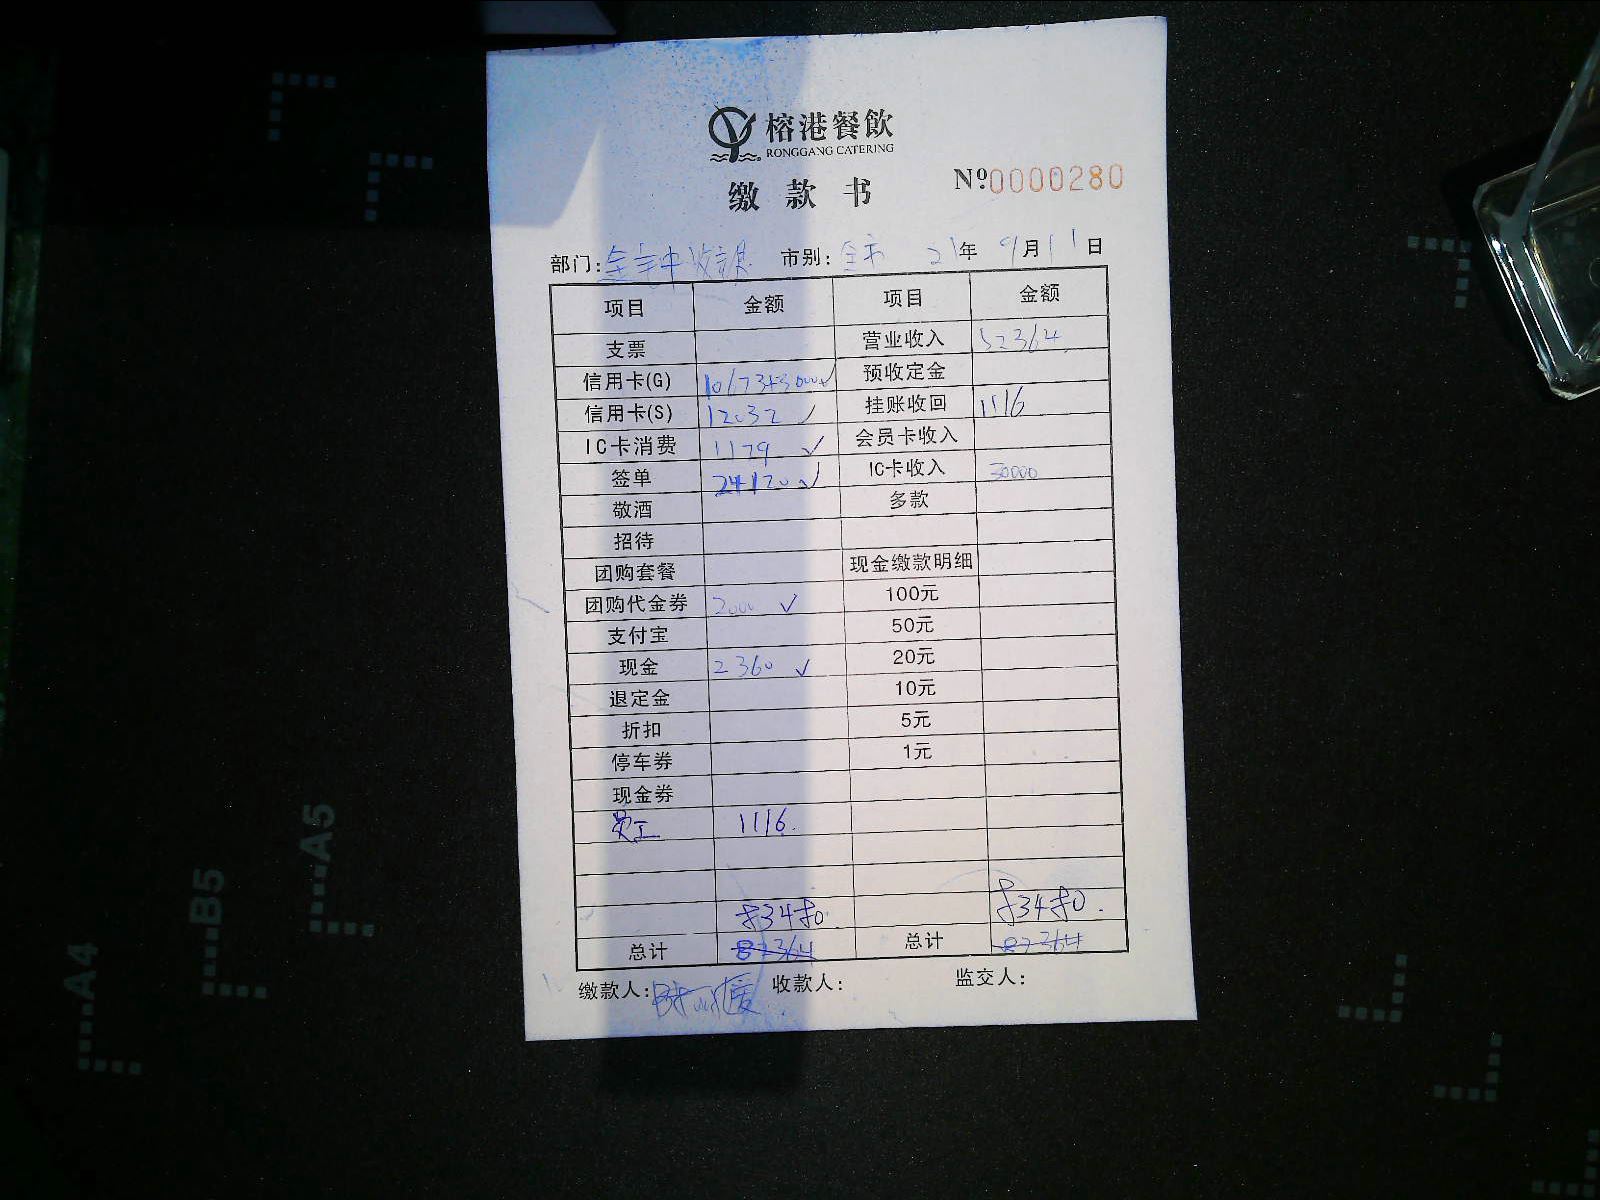 榕港餐飲
RONGGANG CATERING
缴款书 Nº:0000280
部门: 市别:全市 21年9月11日
项目 金额 项目 金额
支票 营业收入 52364
信用卡(G) 10173+30000√ 预收定金
信用卡(S) 12032√ 挂账收回 1116
IC卡消费 1179√ 会员卡收入
签单 24120√ IC卡收入 30000
敬酒 多款
招待
团购套餐 现金缴款明细
团购代金券 2000√ 100元
支付宝 50元
现金 2360√ 20元
退定金 10元
折扣 5元
停车券 1元
现金券
员工 1116.
83480. 83480.
总计 82364 总计 82364
缴款人: 收款人: 监交人:
A4
B5
A5